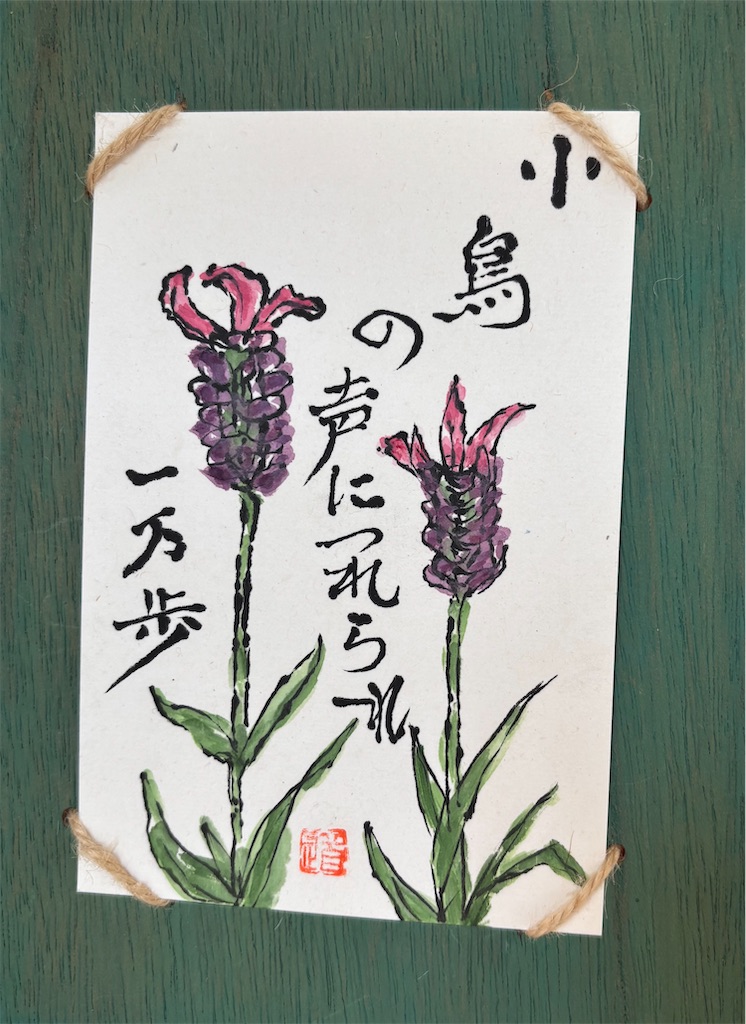 小鳥の声につれられ
一万歩